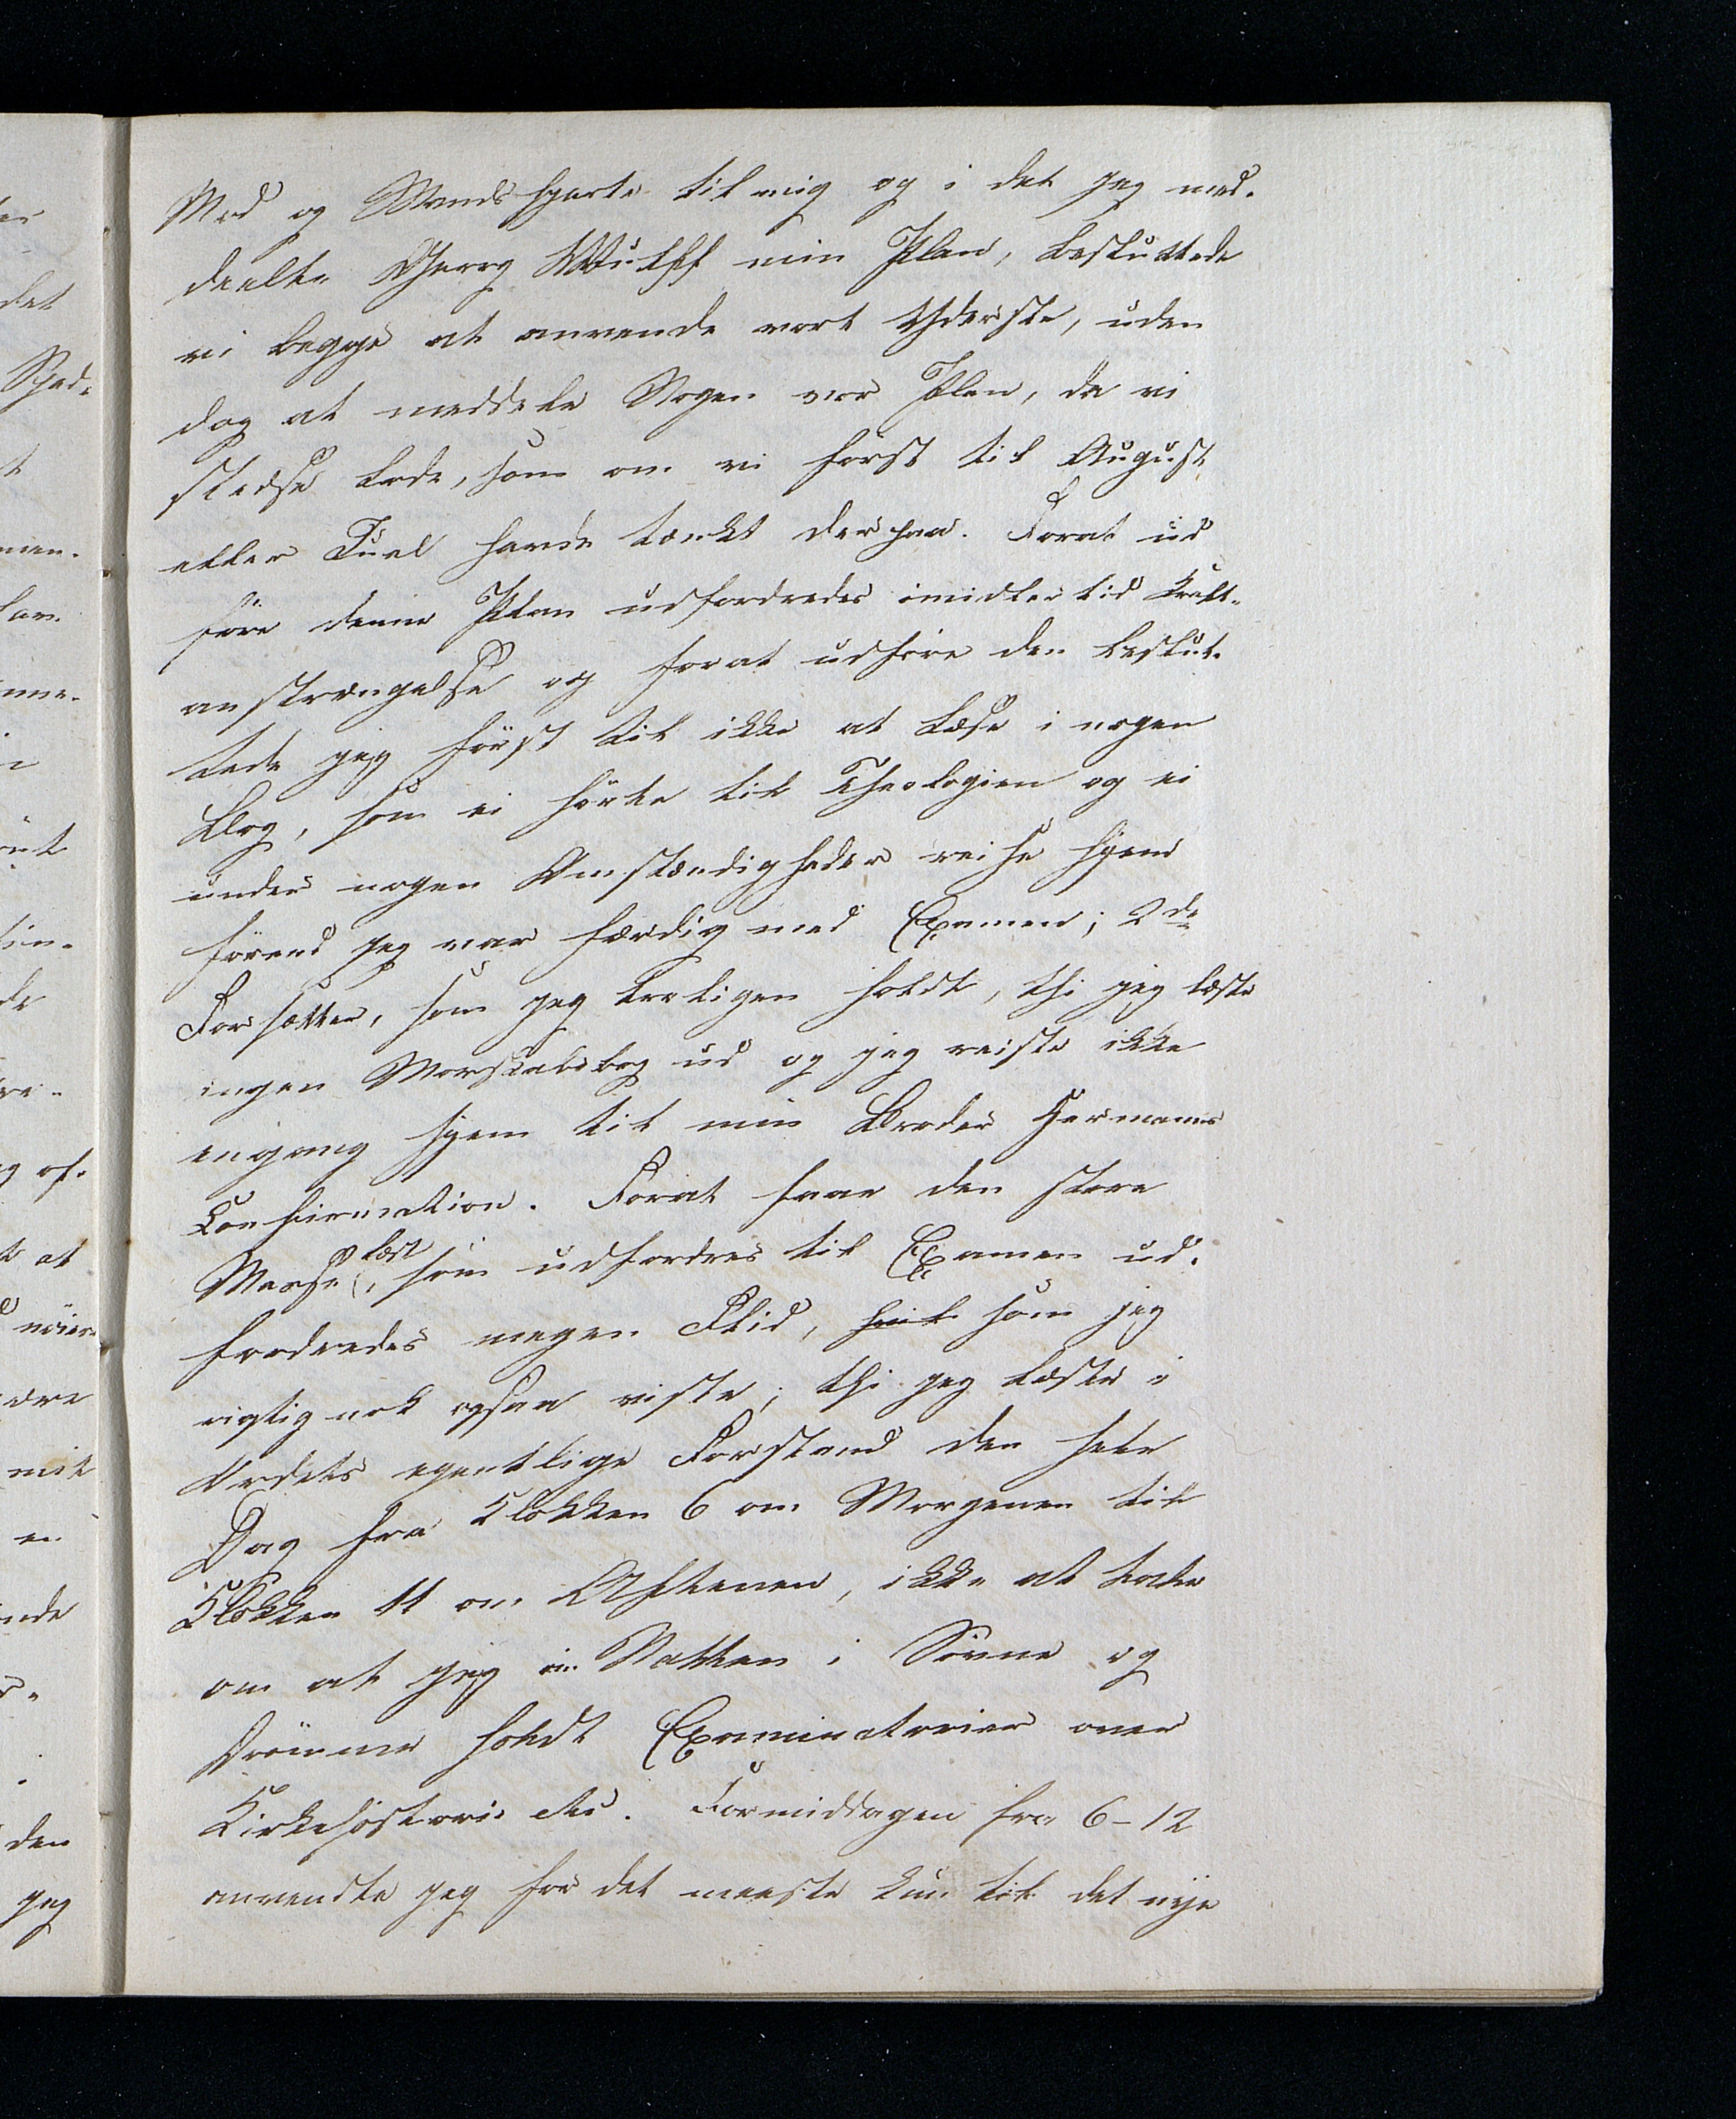 Mod og Mands Hjerte til mig og i det jeg med-
deelte Georg Wulff min Plan, besluttede
vi begge at anvende vort Yderste, uden
dog at meddele Nogen vor Plan, da vi
stedse lode, som om vi først til August
eller Juul havde tænkt derpaa. Forat ud
føre denne Plan udfordredes imidlertid Kraft-
anstrængelse og forat udføre den beslut-
tede jeg først til ikke at læse i nogen
Bog, som ei hørte til Theologien og ei
under nogen Omstændigheder reise hjem
førend jeg var færdig med Examen; 2de
Forsætter, som jeg troligen holdt, thi jeg læste
ingen Morskabsbog ud og jeg reiste ikke
engang hjem til min Broder Hermanns
Confirmation. Forat faae den store
Masse læst, som udfordres til Examen ud-
fordredes megen Flid, som jeg
rigtignok ogsaa viste; thi jeg læste i
Ordets egentlige Forstand den hele
Dag fra Klokken 6 om Morgenen til
Klokken 11 om Aftenen, ikke at tale
om at jeg om Natten i Søvne og
Drømme holdt Examinatorier over
Kirkehistorie etc. Formiddagen fra 6-12
anvendte jeg for det meeste kun til det nye
det
Sted-
jeg
den
mit
at